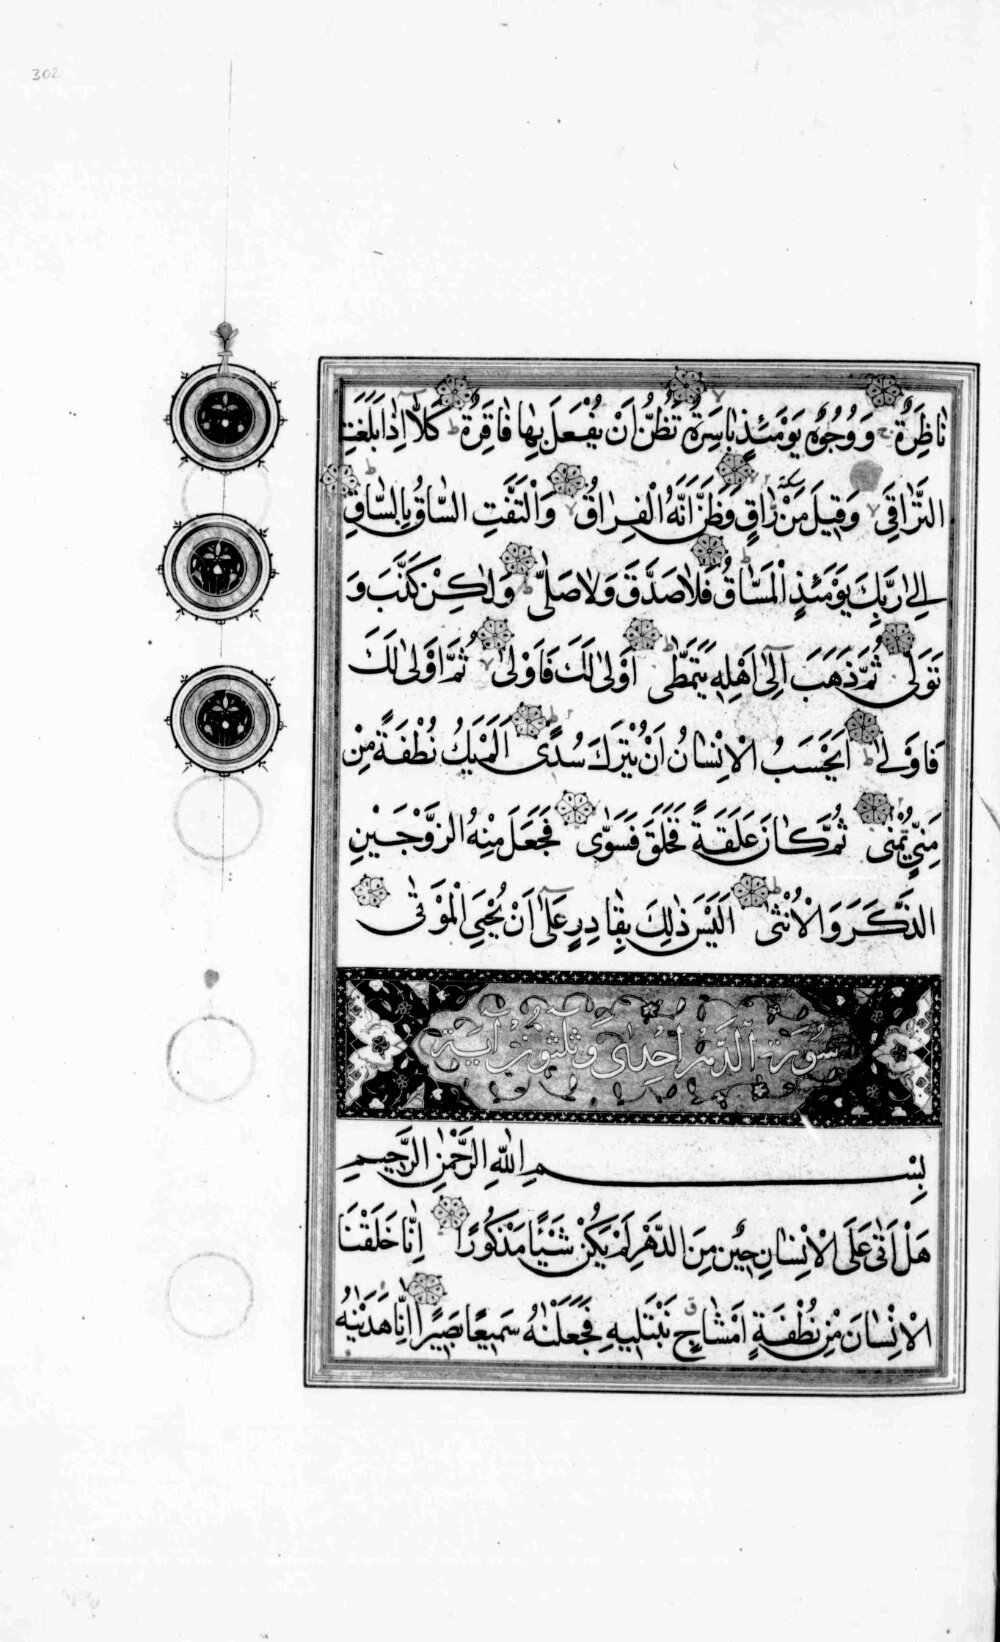 302
نَاظِرَةٌ وَوُجُوهٌ يَوْمَئِذٍ بَاسِرَةٌ تَظُنُّ اَنْ يُفْعَلَ بِهَا فَاقِرَةٌ كَلَّا اِذَا بَلَغَتِ
التَّرَاقِيَ وَقِيلَ مَنْ رَاقٍ وَظَنَّ اَنَّهُ الْفِرَاقُ وَالْتَفَّتِ السَّاقُ بِالسَّاقِ
اِلٰى رَبِّكَ يَوْمَئِذٍ الْمَسَاقُ فَلَا صَدَّقَ وَلَا صَلّٰى وَلٰكِنْ كَذَّبَ وَ
تَوَلّٰى ثُمَّ ذَهَبَ اِلٰٓى اَهْلِهٖ يَتَمَطّٰى اَوْلٰى لَكَ فَاَوْلٰى ثُمَّ اَوْلٰى لَكَ
فَاَوْلٰى اَيَحْسَبُ الْاِنْسَانُ اَنْ يُتْرَكَ سُدًى اَلَمْ يَكُ نُطْفَةً مِنْ
مَنِيٍّ يُمْنٰى ثُمَّ كَانَ عَلَقَةً فَخَلَقَ فَسَوّٰى فَجَعَلَ مِنْهُ الزَّوْجَيْنِ
الذَّكَرَ وَالْاُنْثٰى اَلَيْسَ ذٰلِكَ بِقَادِرٍ عَلٰٓى اَنْ يُحْيِيَ الْمَوْتٰى
سُورَةُ الدَّهْرِ اِحْدٰى وَثَلٰثُونَ آيَة
بِسْمِ اللّٰهِ الرَّحْمٰنِ الرَّحِيمِ
هَلْ اَتٰى عَلَى الْاِنْسَانِ حِينٌ مِنَ الدَّهْرِ لَمْ يَكُنْ شَيْئًا مَذْكُورًا اِنَّا خَلَقْنَا
الْاِنْسَانَ مِنْ نُطْفَةٍ اَمْشَاجٍ نَبْتَلِيهِ فَجَعَلْنٰهُ سَمِيعًا بَصِيرًا اِنَّا هَدَيْنٰهُ